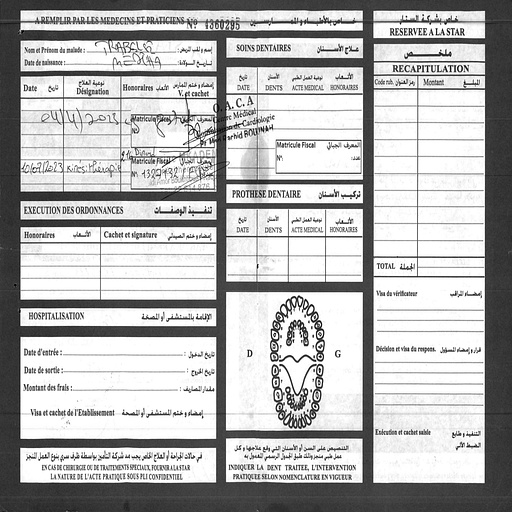 A REMPLIR PAR LES MEDECINS ET PRATICIENS Nº 4360295 خاص بالأطباء و الممارسين
Nom et Prénom du malade : TRABELSI إسم و لقب المريض :
Date de naissance : تاريخ الولادة :
Date تاريخ
نوعية العلاج Désignation
Honoraires الأتعاب
إمضاء و ختم الممارس V. et cachet
04/4/2023
Matricule Fiscal المعرف الجبائي
N°
O. A. C. A
Centre Médical
de Cardiologie
10/07/2023 Kinésithérapie
Matricule Fiscal المعرف الجبائي
N°
EXECUTION DES ORDONNANCES تنفيذ الوصفات
Honoraires الأتعاب Cachet et signature إمضاء و ختم الصيدلي
HOSPITALISATION الإقامة بالمستشفى أو المصحة
Date d'entrée : تاريخ الدخول :
Date de sortie : تاريخ الخروج :
Montant des frais : مقدار المصاريف :
Visa et cachet de l'Etablissement إمضاء و ختم المستشفى أو المصحة
في حالات الجراحة أو العلاج الخاص يجب مد شركة التأمين بواسطة ظرف سري بنوع العمل المنجز
EN CAS DE CHIRURGIE OU DE TRAITEMENTS SPECIAUX, FOURNIR A LA STAR
LA NATURE DE L'ACTE PRATIQUE SOUS PLI CONFIDENTIEL
SOINS DENTAIRES علاج الأسنان
تاريخ DATE
الأسنان DENTS
نوعية العمل الطبي ACTE MEDICAL
الأتعاب HONORAIRES
Matricule Fiscal المعرف الجبائي
N° عدد:
PROTHESE DENTAIRE تركيب الأسنان
تاريخ DATE
الأسنان DENTS
نوعية العمل الطبي ACTE MEDICAL
الأتعاب HONORAIRES
D G
التنصيص على السن أو الأسنان التي وقع علاجها و كل
عمل طبي منجز وذلك طبق الجدول الرسمي المعمول به
INDIQUER LA DENT TRAITEE, L'INTERVENTION
PRATIQUEE SELON NOMENCLATURE EN VIGUEUR
خاص بشركة الستار
RESERVEE A LA STAR
ملخص
RECAPITULATION
Code rub. رمز العنوان Montant المبلغ
TOTAL الجملة
Visa du vérificateur إمضاء المراقب
Décision et visa du respons. قرار و إمضاء المسؤول
Exécution et cachet saisie التنفيذ و طابع
الضبط الآلي